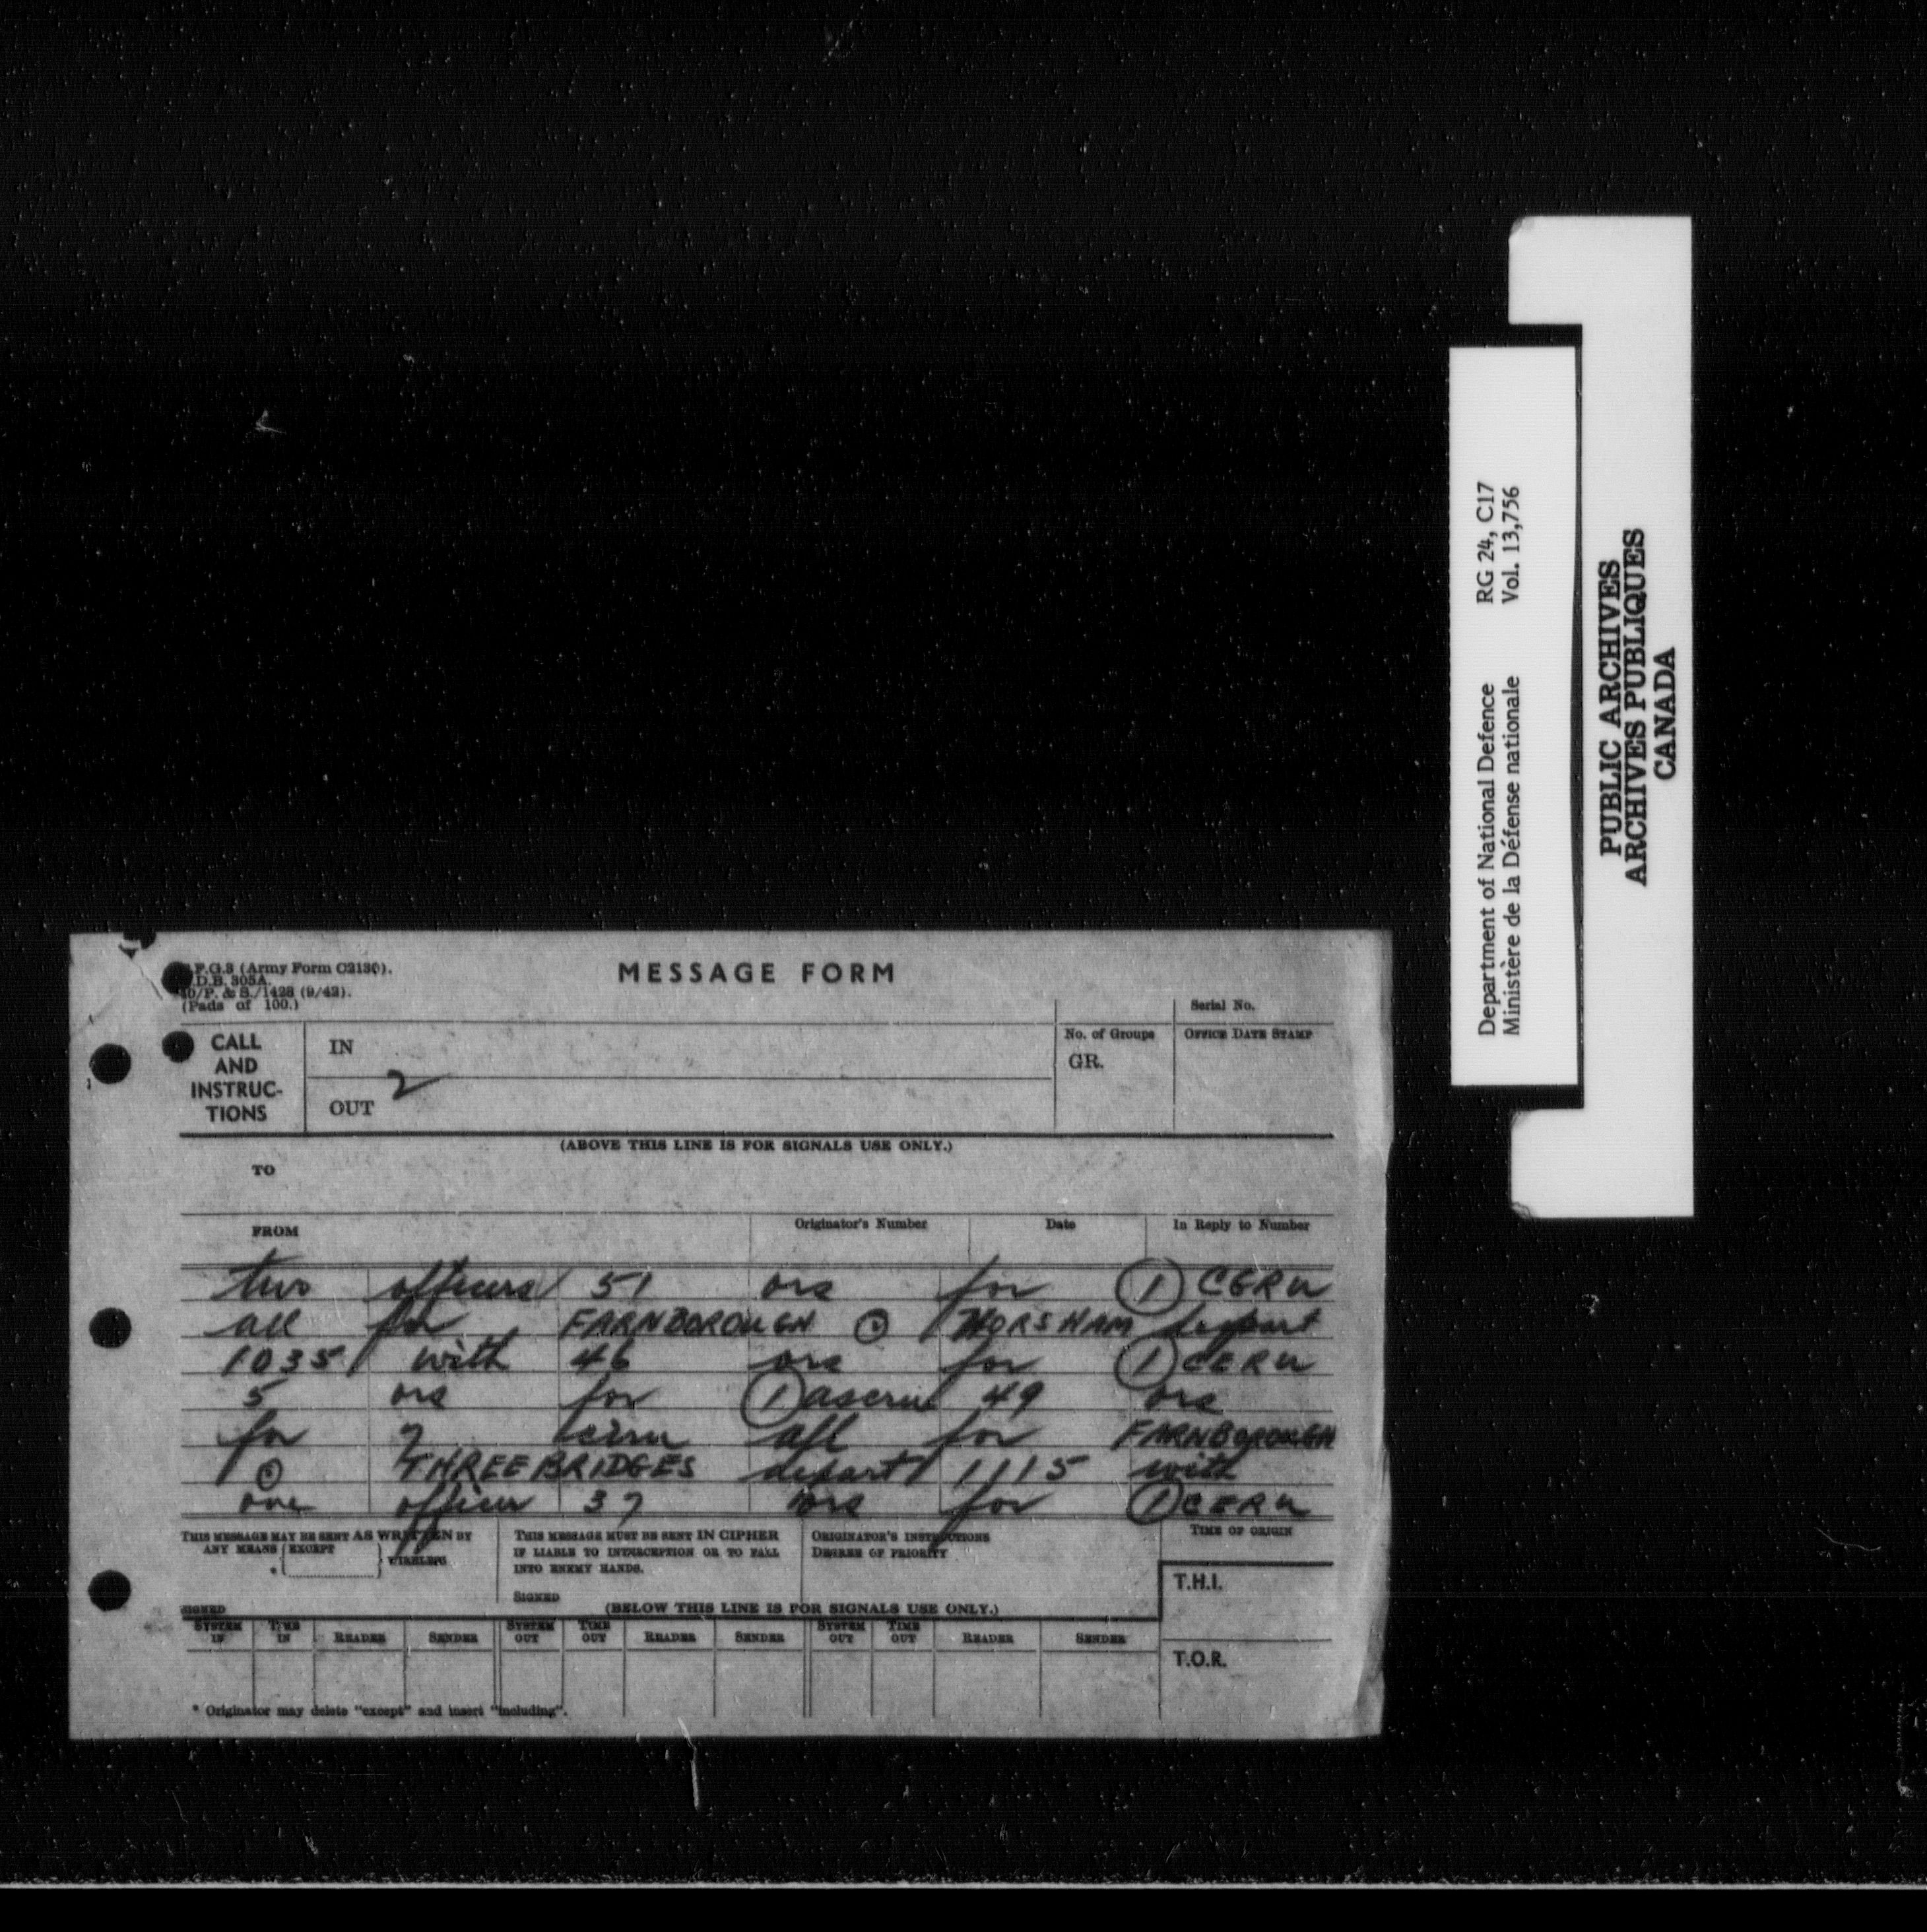 .F.G.3 (Army Form C2130).
.D.B. 305A.
40/P. & S./1428 (9/42).
(Pads of 100.)
MESSAGE FORM
Serial No.
CALL AND INSTRUC-TIONS
IN
No. of Groups
GR.
OFFICE DATE STAMP
2
OUT
(ABOVE THIS LINE IS FOR SIGNALS USE ONLY.)
TO
FROM
Originator's Number
Date
In Reply to Number
two officers 51 ors for 1 CGRU
all for FARNBOROUGH HORSHAM depart
1035 with 46 ors for 1 CERU
5 ors for 1 ascru 49 ors
for 7 ceru all for FARNBOROUGH
THREE BRIDGES depart 1115 with
one officer 37 ors for 1 CERU
THIS MESSAGE MAY BE SENT AS WRITTEN BY
ANY MEANS EXCEPT
* WIRELESS
SIGNED
THIS MESSAGE MUST BE SENT IN CIPHER
IF LIABLE TO INTERCEPTION OR TO FALL
INTO ENEMY HANDS.
SIGNED
ORIGINATOR'S INSTRUCTIONS
DEGREE OF PRIORITY
TIME OF ORIGIN
T.H.I.
(BELOW THIS LINE IS FOR SIGNALS USE ONLY.)
SYSTEM IN TIME IN READER SENDER SYSTEM OUT TIME OUT READER SENDER SYSTEM OUT TIME OUT READER SENDER
T.O.R.
* Originator may delete "except" and insert "including".
Department of National Defence RG 24, C17
Ministère de la Défense nationale Vol. 13,756
PUBLIC ARCHIVES
ARCHIVES PUBLIQUES
CANADA